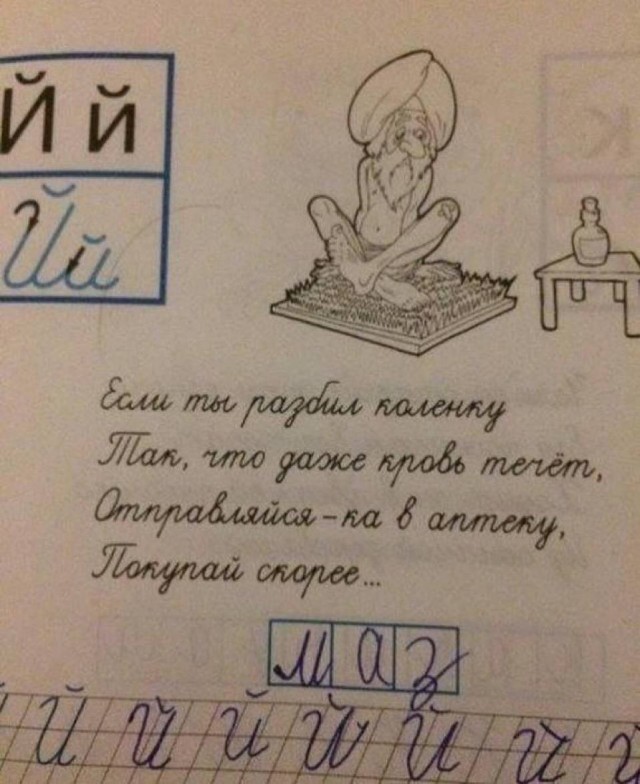 Й й
Й й
Если ты разбил коленку
Так, что даже кровь течёт,
Отправляйся-ка в аптеку,
Покупай скорее...
маз
й й й й й й й